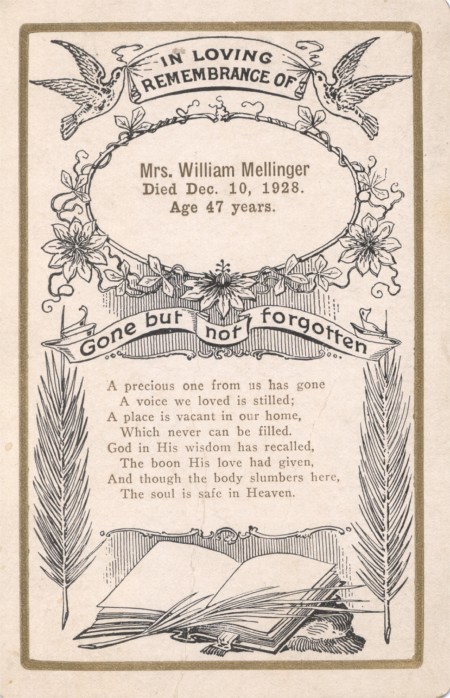 IN LOVING
REMEMBRANCE OF
Mrs. William Mellinger
Died Dec. 10, 1928.
Age 47 years.
Gone but not forgotten
A precious one from us has gone
A voice we loved is stilled;
A place is vacant in our home,
Which never can be filled.
God in His wisdom has recalled,
The boon His love had given,
And though the body slumbers here,
The soul is safe in Heaven.